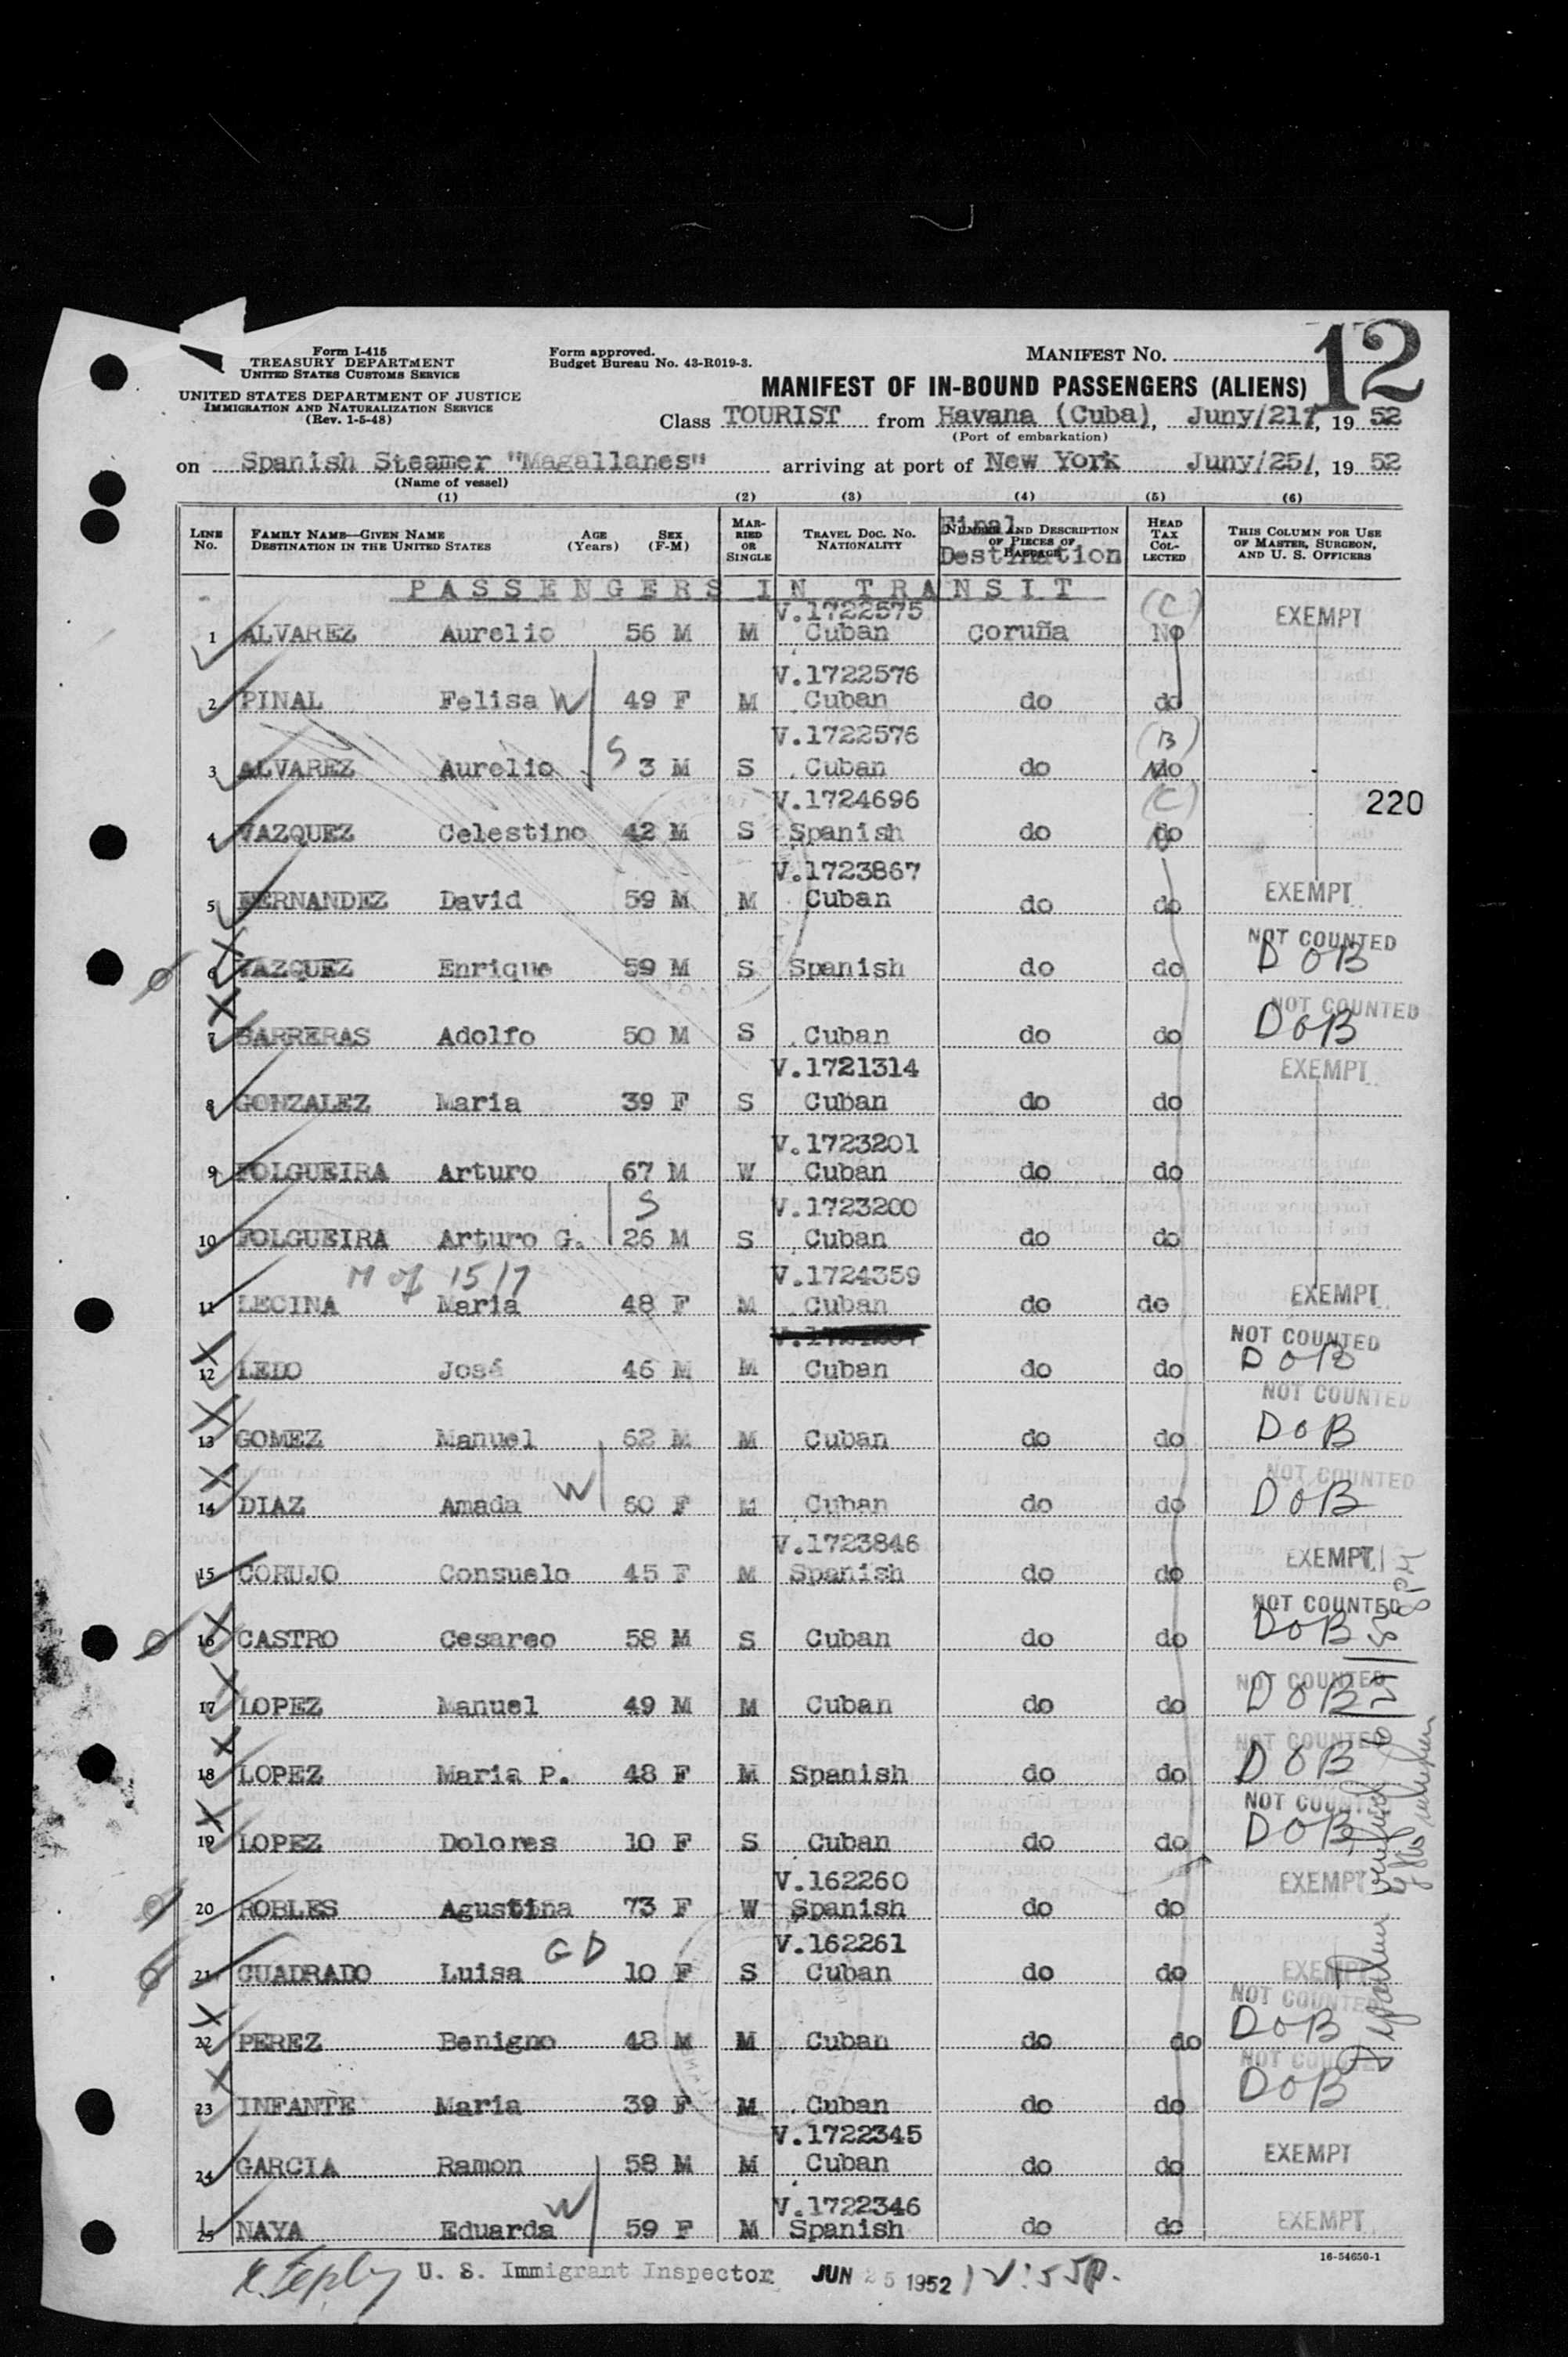 12
Form I-415
TREASURY DEPARTMENT
UNITED STATES CUSTOMS SERVICE
UNITED STATES DEPARTMENT OF JUSTICE
IMMIGRATION AND NATURALIZATION SERVICE
(Rev. 1-5-48)
Form approved.
Budget Bureau No. 43-R019-3.
MANIFEST No.
MANIFEST OF IN-BOUND PASSENGERS (ALIENS)
Class TOURIST from Havana (Cuba), Juny/21/, 19 52
(Port of embarkation)
on Spanish Steamer "Magallanes" arriving at port of New York Juny/25/, 19 52
(Name of vessel)
(1) (2) (3) (4) (5) (6)
LINE No. FAMILY NAME—GIVEN NAME DESTINATION IN THE UNITED STATES AGE (Years) SEX (F-M) MARRIED OR SINGLE TRAVEL DOC. No. NATIONALITY NUMBER AND DESCRIPTION OF PIECES OF BAGGAGE HEAD TAX COLLECTED THIS COLUMN FOR USE OF MASTER, SURGEON, AND U. S. OFFICERS
Final Destination
PASSENGERS IN TRANSIT
V.1722575 (C) EXEMPT
1 ALVAREZ Aurelio 56 M M Cuban Coruña No
V.1722576
2 PINAL Felisa W 49 F M Cuban do do
V.1722576 (B)
3 ALVAREZ Aurelio S 3 M S Cuban do do
V.1724696 (C) 220
4 VAZQUEZ Celestino 42 M S Spanish do do
V.1723867
5 FERNANDEZ David 59 M M Cuban do do EXEMPT
NOT COUNTED
6 VAZQUEZ Enrique 59 M S Spanish do do DOB
NOT COUNTED
7 BARRERAS Adolfo 50 M S Cuban do do DOB
V.1721314 EXEMPT
8 GONZALEZ Maria 39 F S Cuban do do
V.1723201
9 FOLGUEIRA Arturo 67 M W Cuban do do
S V.1723200
10 FOLGUEIRA Arturo G. 26 M S Cuban do do
M of 15 17 V.1724359
11 LECINA Maria 48 F M Cuban do do EXEMPT
NOT COUNTED
12 LEDO José 46 M M Cuban do do DOB
NOT COUNTED
13 GOMEZ Manuel 62 M M Cuban do do DOB
NOT COUNTED
14 DIAZ Amada W 60 F M Cuban do do DOB
V.1723846 EXEMPT
15 CORUJO Consuelo 45 F M Spanish do do
NOT COUNTED
16 CASTRO Cesareo 58 M S Cuban do do DOB
NOT COUNTED
17 LOPEZ Manuel 49 M M Cuban do do DOB
NOT COUNTED
18 LOPEZ Maria P. 48 F M Spanish do do DOB
NOT COUNTED
19 LOPEZ Dolores 10 F S Cuban do do DOB
V.162260 EXEMPT
20 ROBLES Agustina 73 F W Spanish do do
GD V.162261
21 CUADRADO Luisa 10 F S Cuban do do EXEMPT
NOT COUNTED
22 PEREZ Benigno 48 M M Cuban do do DOB
NOT COUNTED
23 INFANTE Maria 39 F M Cuban do do DOB
V.1722345
24 GARCIA Ramon 58 M M Cuban do do EXEMPT
V.1722346
25 NAYA Eduarda W 59 F M Spanish do do EXEMPT
16-54650-1
U. S. Immigrant Inspector JUN 25 1952